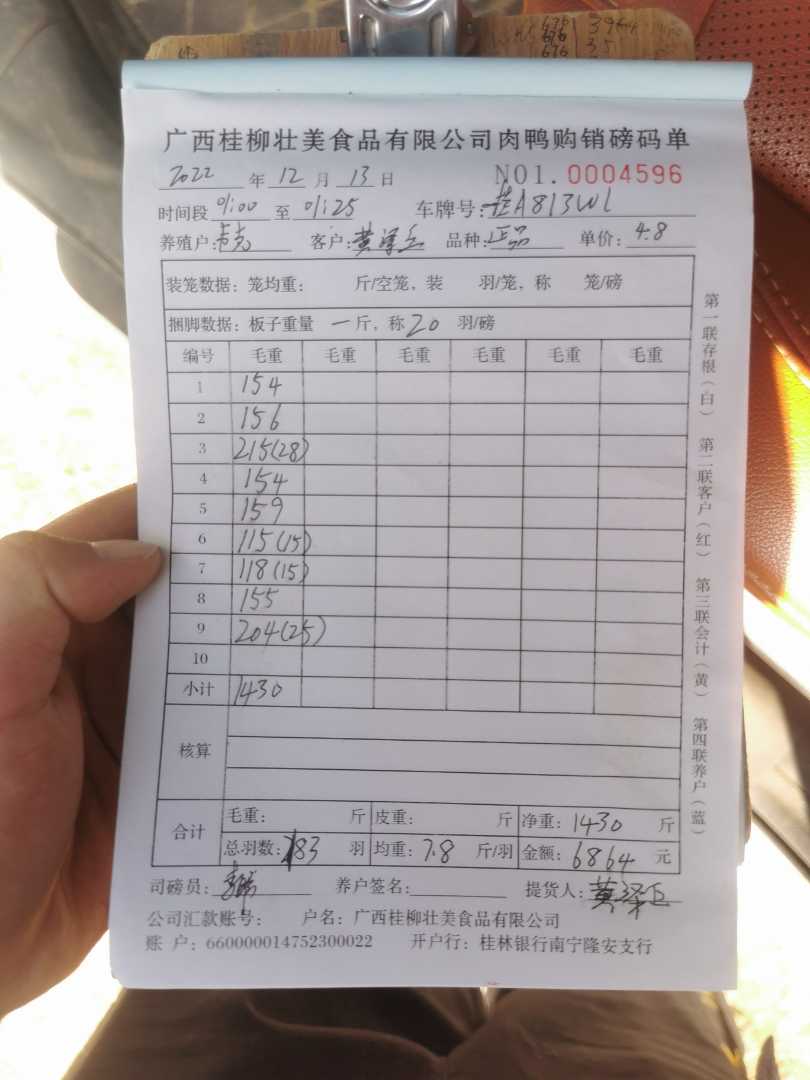 广西桂柳壮美食品有限公司肉鸭购销磅码单
2022 年 12 月 13 日 NO1.0004596
时间段 01:00 至 01:25 车牌号: 桂A813WL
养殖户: 客户: 黄泽 品种: 正品 单价: 4.8
装笼数据: 笼均重: 斤/空笼, 装 羽/笼, 称 笼/磅
捆脚数据: 板子重量 一 斤, 称 20 羽/磅
编号 毛重 毛重 毛重 毛重 毛重 毛重
1 154
2 156
3 215(28)
4 154
5 159
6 115(15)
7 118(15)
8 155
9 204(25)
10
小计 1430
核算
合计
毛重: 斤 皮重: 斤 净重: 1430 斤
总羽数: 183 羽 均重: 7.8 斤/羽 金额: 6864 元
司磅员: 养户签名: 提货人: 黄泽
公司汇款账号: 户名: 广西桂柳壮美食品有限公司
账 户: 660000014752300022 开户行: 桂林银行南宁隆安支行
第一联存根(白) 第二联客户(红) 第三联会计(黄) 第四联养户(蓝)